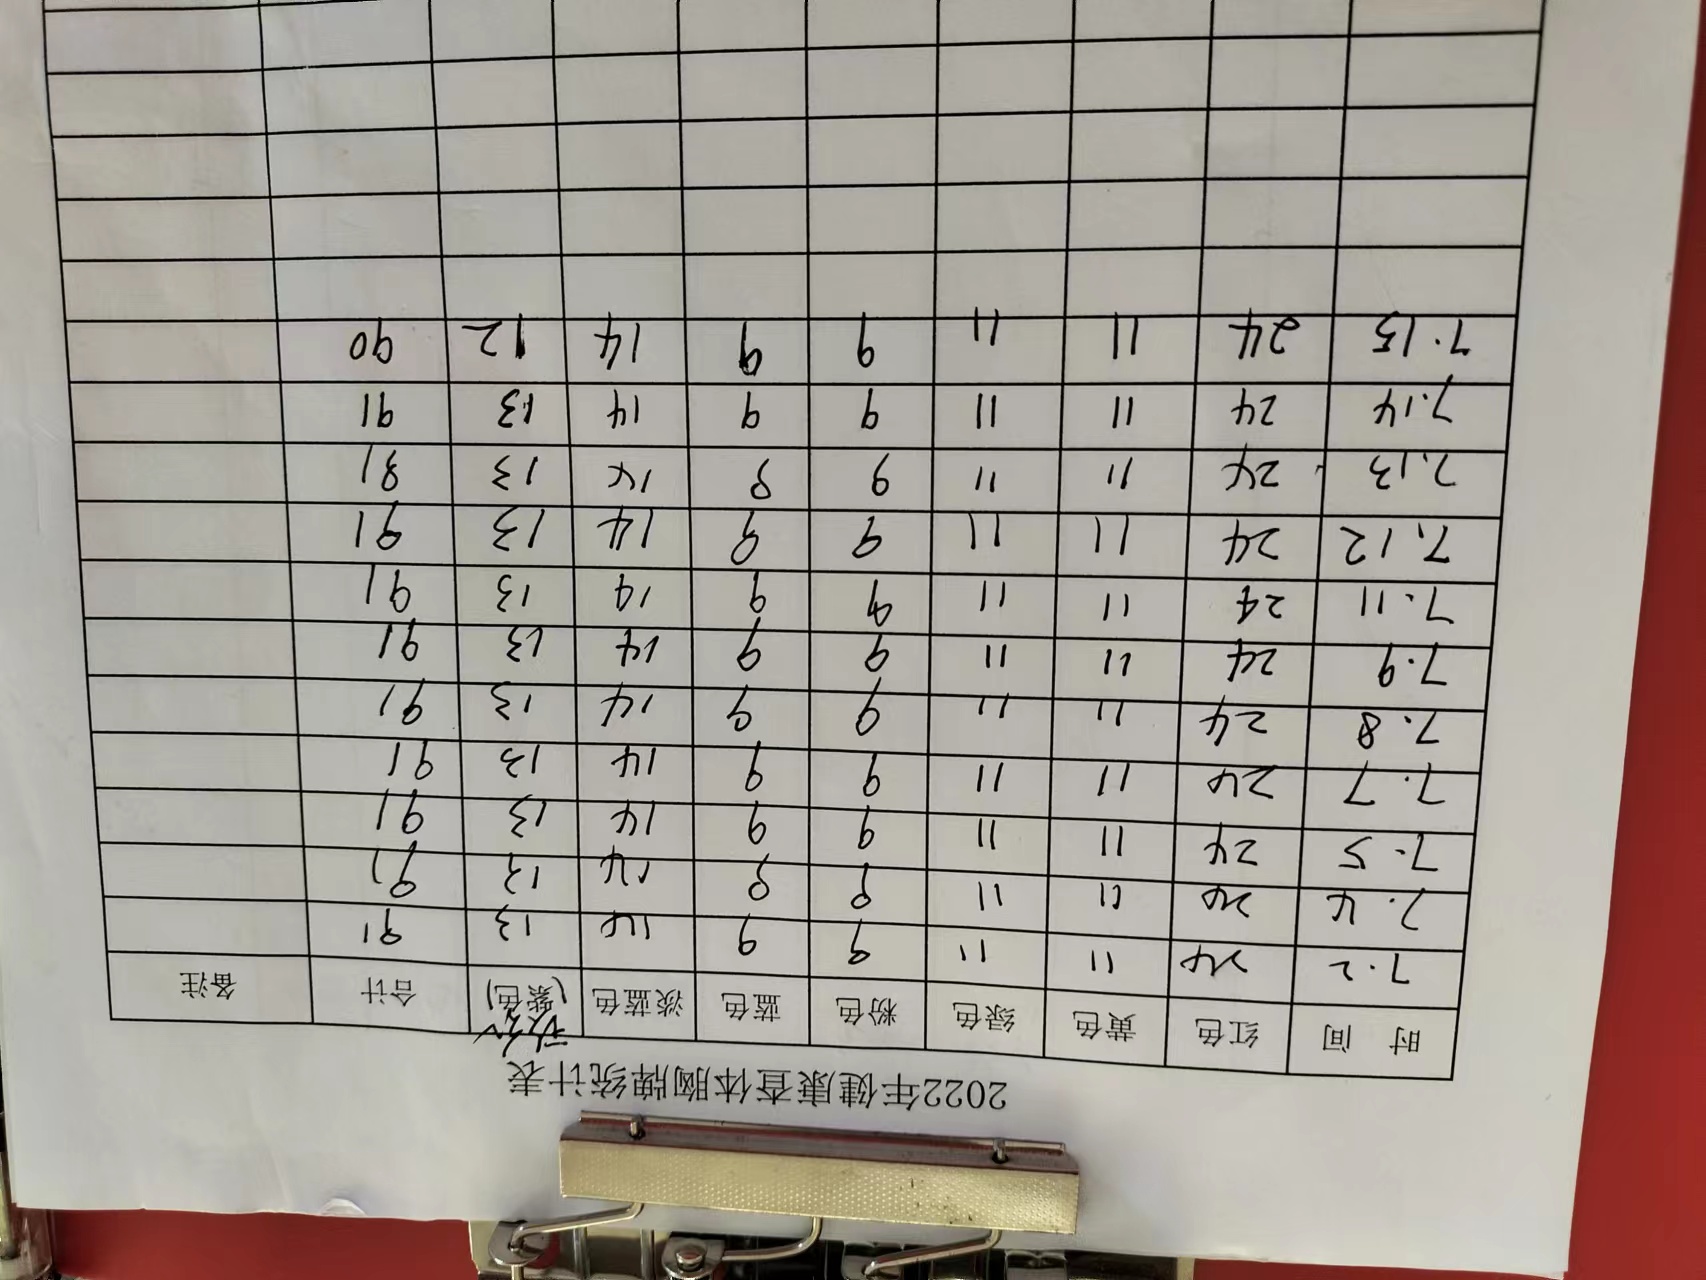 2022年健康查体胸牌统计表
时 间 红色 黄色 绿色 粉色 蓝色 淡蓝色 (紫色) 合计 备注
7.2 24 11 11 9 9 14 13 91
7.4 24 11 11 9 9 14 13 91
7.5 24 11 11 9 9 14 13 91
7.7 24 11 11 9 9 14 13 91
7.8 24 11 11 9 9 14 13 91
7.9 24 11 11 9 9 14 13 91
7.11 24 11 11 9 9 14 13 91
7.12 24 11 11 9 9 14 13 91
7.13 24 11 11 9 9 14 13 91
7.14 24 11 11 9 9 14 13 91
7.15 24 11 11 9 9 14 12 90